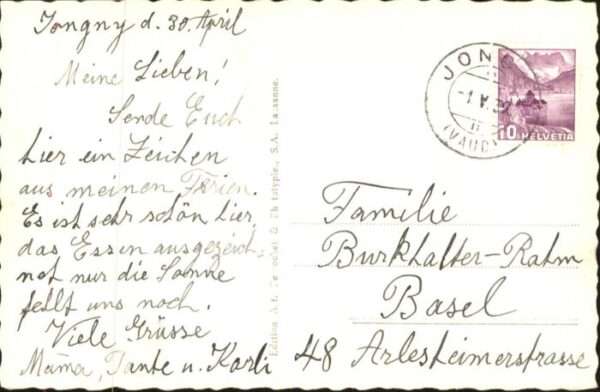 Jongny d. 30. April
Meine Lieben!
Sende Euch
hier ein Zeichen
aus meinen Ferien.
Es ist sehr schön hier,
das Essen ausgezeich-
net nur die Sonne
fehlt uns noch.
Viele Grüsse
Mama, Tante u. Karli
Edition A. & Phototypie, S.A. Lausanne.
JON
-1.V.
(VAUD)
10 HELVETIA
Familie
Burkhalter-Rahm
Basel
48 Arlesheimerstrasse